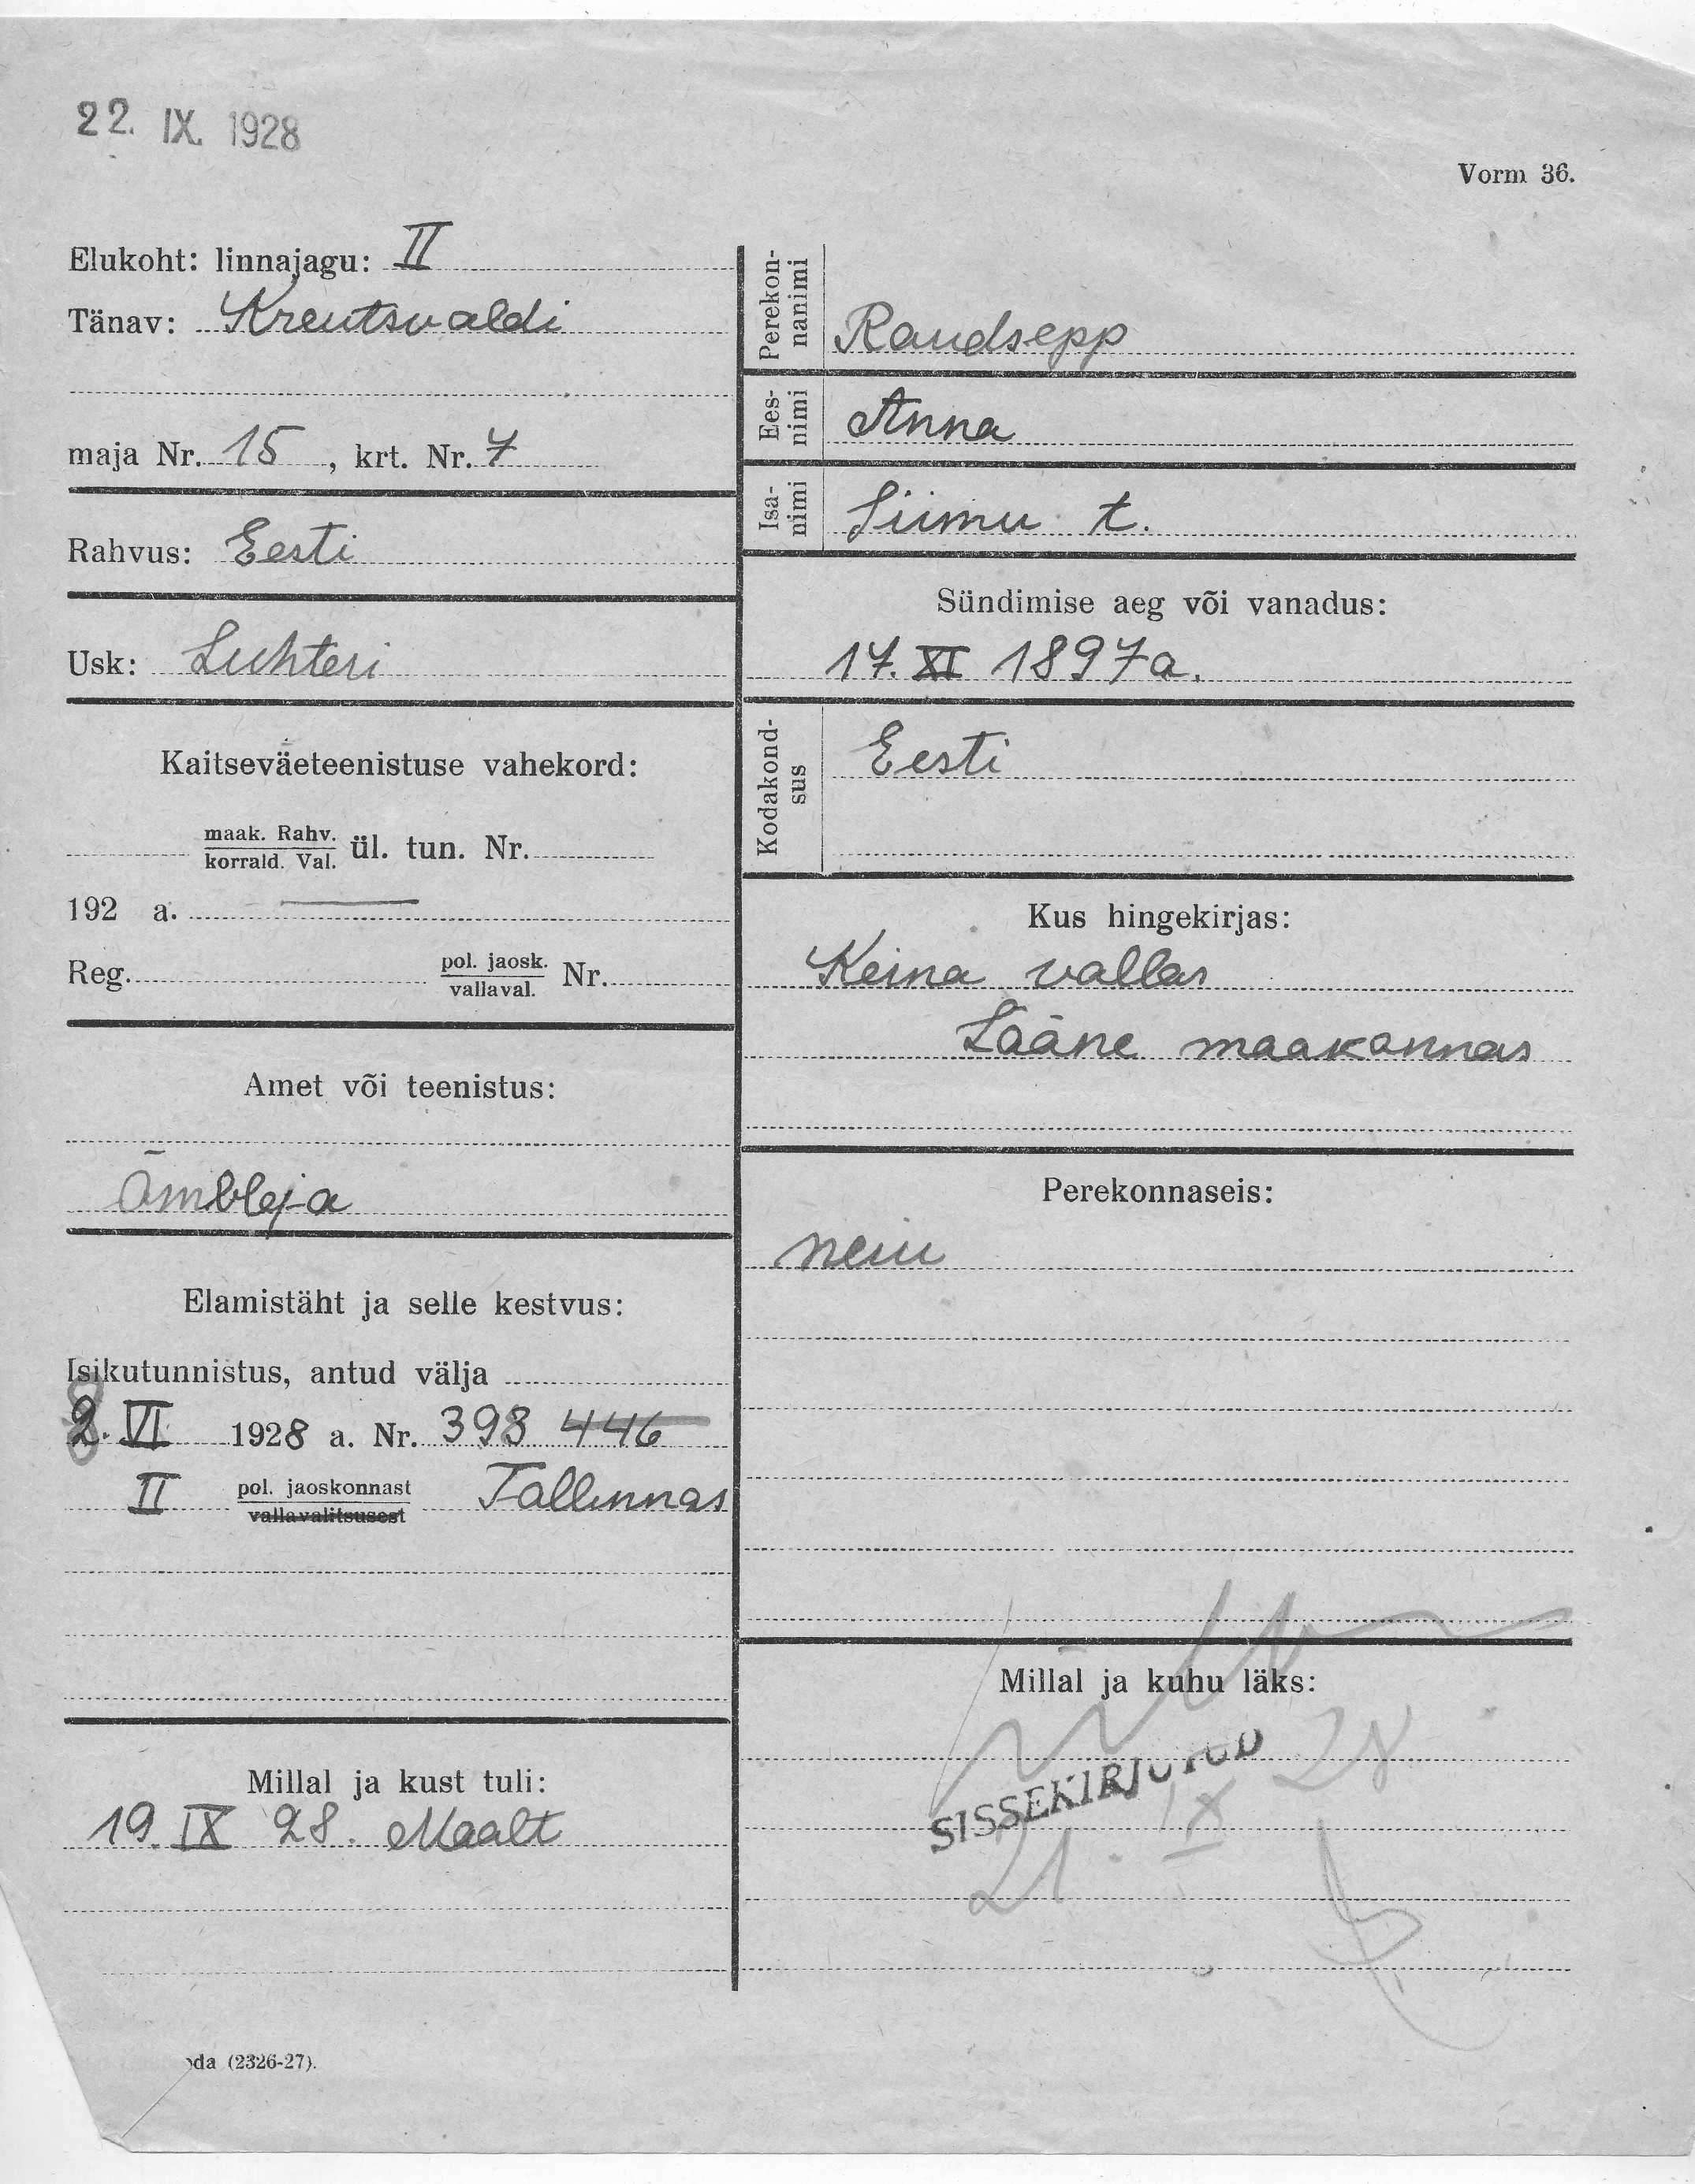 22. IX. 1928
Vorm 36.
Elukoht: linnajagu: II
Tänav: Kreutsvaldi
maja Nr. 15, krt. Nr. 7
Rahvus: Eesti
Usk: Luhteri
Kaitseväeteenistuse vahekord:
maak. Rahv.
korrald. Val. ül. tun. Nr.
192 a. —
Reg. pol. jaosk.
vallaval. Nr.
Amet või teenistus:
Õmbleja
Elamistäht ja selle kestvus:
Isikutunnistus, antud välja
2. VI 1928 a. Nr. 398 446
II pol. jaoskonnast Tallinnas
vallavalitsusest
Millal ja kust tuli:
19. IX 28. Maalt
Perekon-
nanimi Raudsepp
Ees-
nimi Anna
Isa-
nimi Siimu t.
Sündimise aeg või vanadus:
17. XI 1897 a.
Kodakond-
sus Eesti
Kus hingekirjas:
Keina vallas
Lääne maakonnas
Perekonnaseis:
neiu
Millal ja kuhu läks:
SISSEKIRJUTUD
21. IX 28
oda (2326-27).